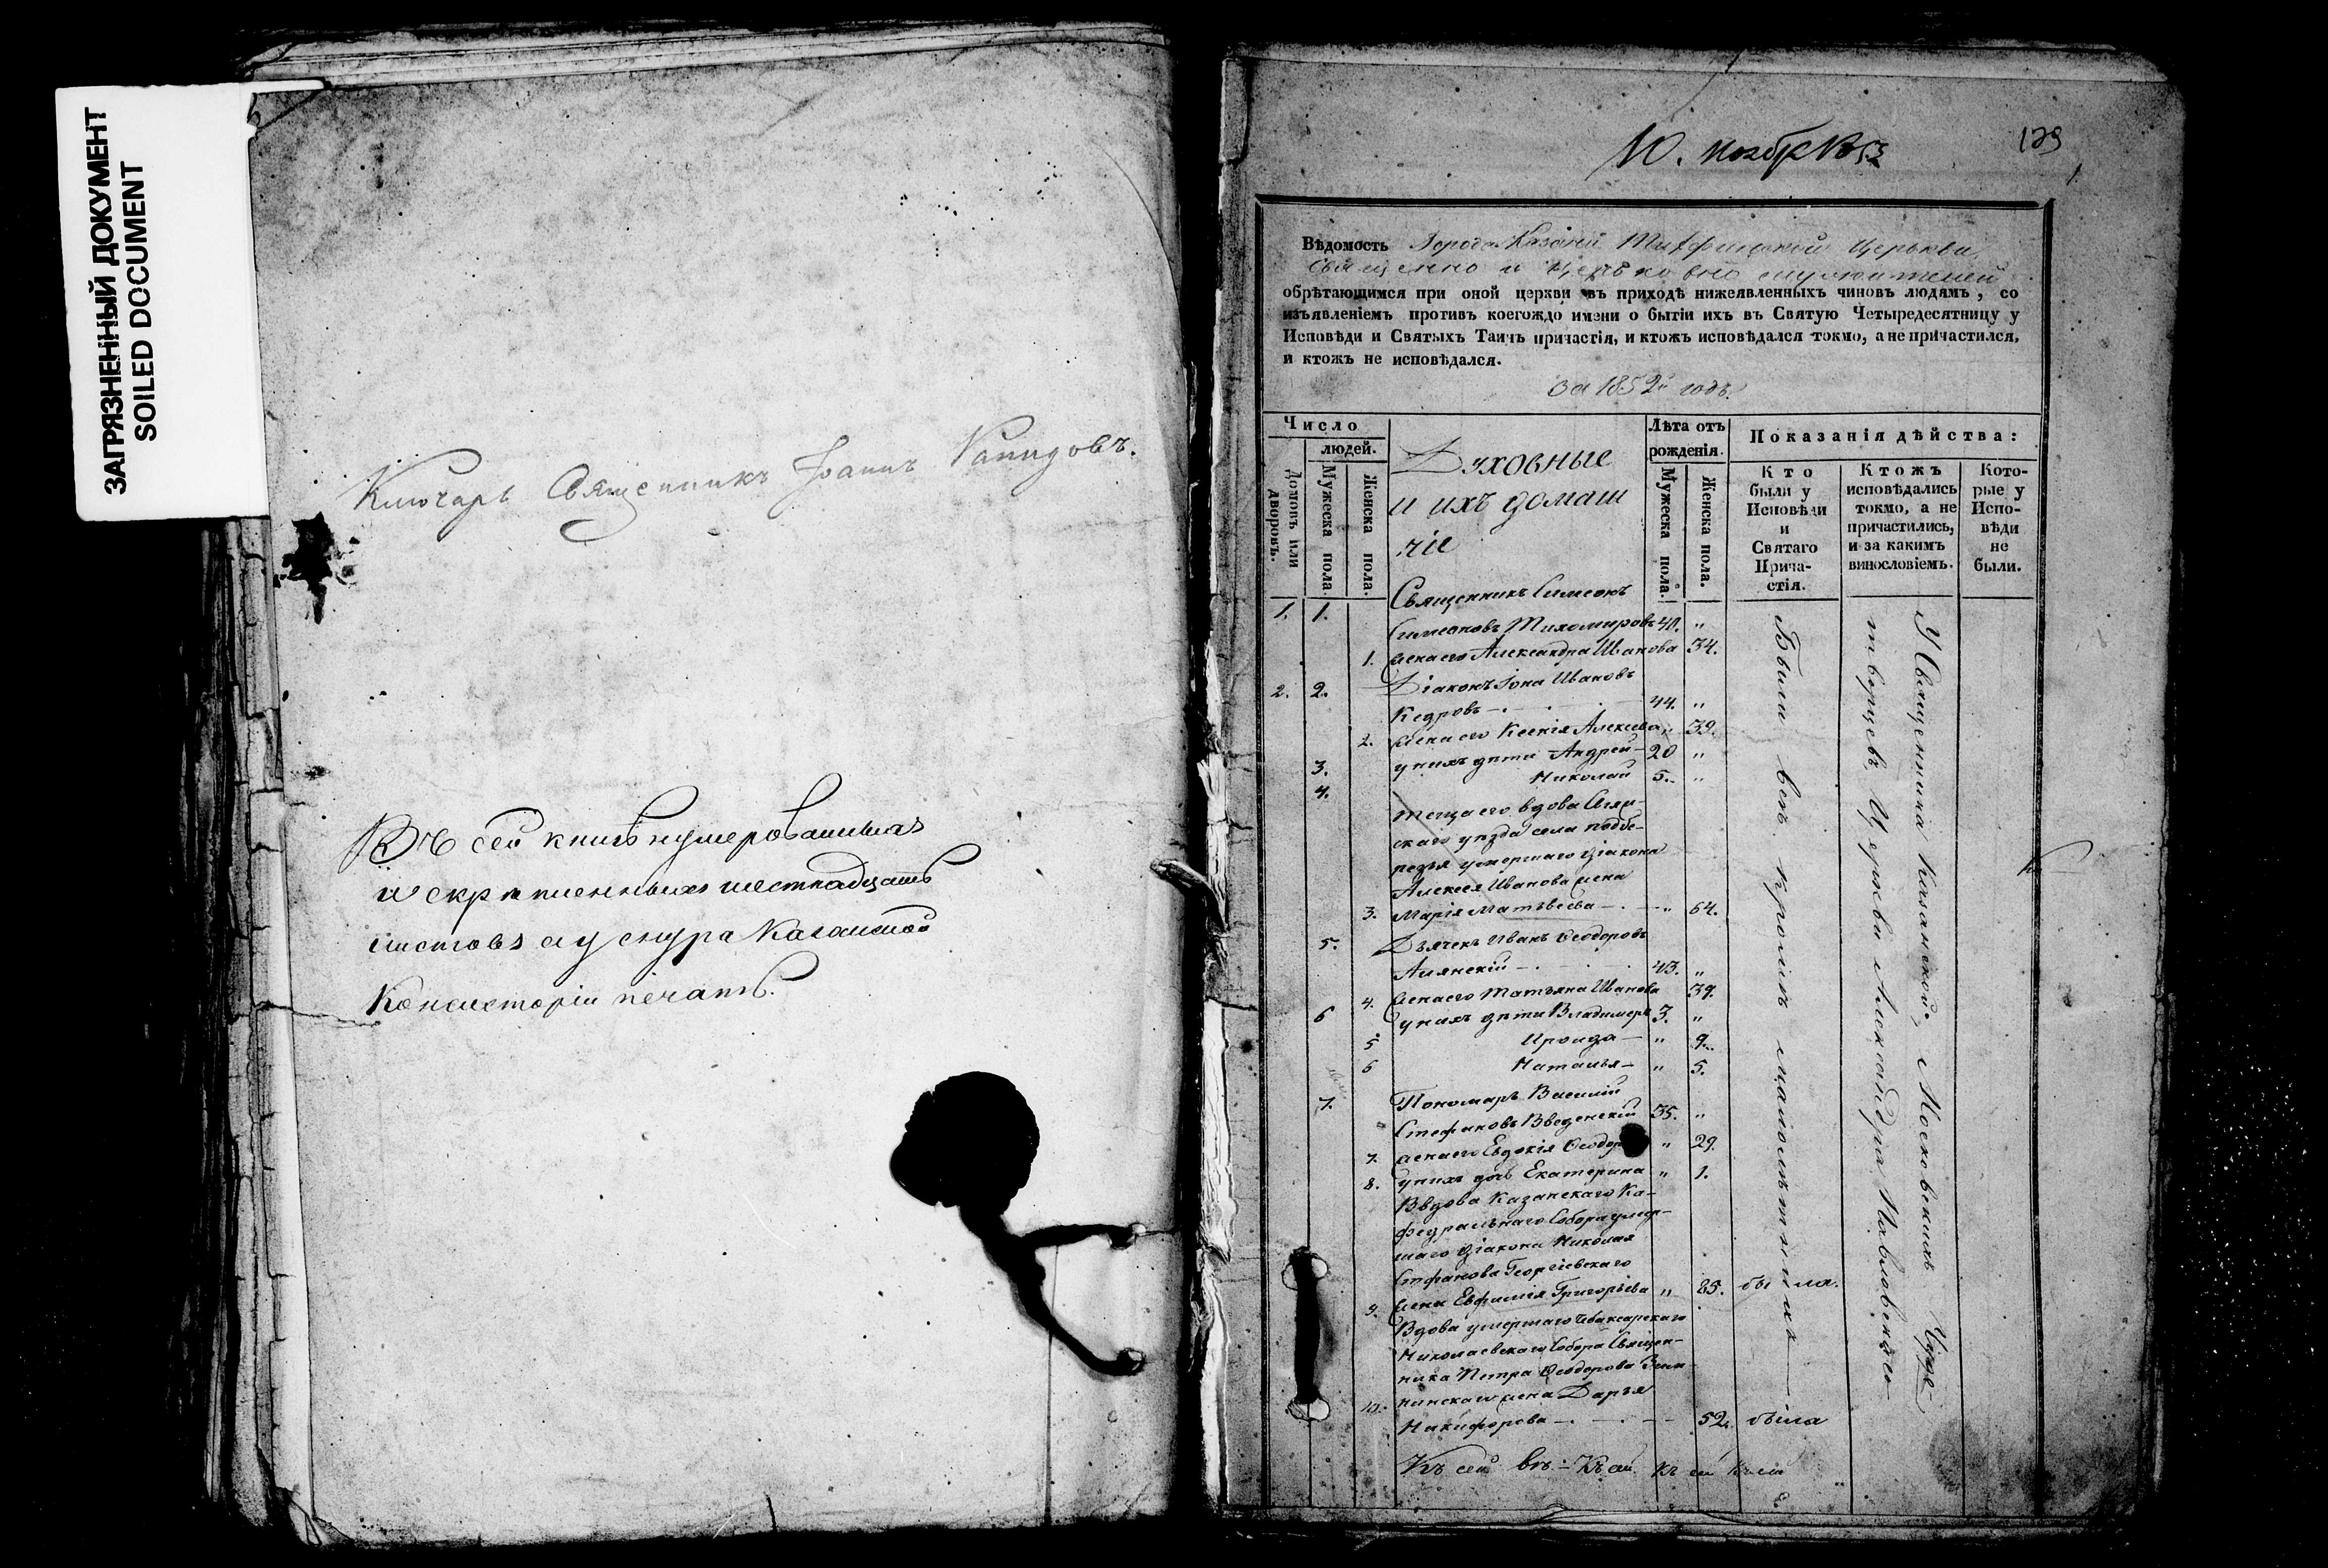 ЗАГРЯЗНЕННЫЙ ДОКУМЕНТ
SOILED DOCUMENT
Ключарь Священникъ Іоаннъ
Въ сей книгѣ нумерованныхъ
и скрѣпленныхъ шестнадцать
листовъ а у снура Казанской
Консисторіи печать.
10. нояб
Вѣдомость Города Казани Тихфинской Церькви
Священно и Церьковно служителей
обрѣтающимся при оной церкви въ приходѣ нижеявленныхъ чиновъ людямъ, со
изъявленіемъ противъ коегождо имени о бытіи ихъ въ Святую Четыредесятницу у
Исповѣди и Святыхъ Таинъ причастія, и ктожъ исповѣдался токмо, а не причастился,
и ктожъ не исповѣдался.
За 1852й годъ.
Число
людей.
Домовъ или
дворовъ.
Мужеска пола.
Женска пола.
Духовные
и ихъ домаш
ніе
Лѣта отъ
рожденія.
Мужеска пола.
Женска пола.
Показанія дѣйства:
Кто
были у
Исповѣди
и
Святаго
Прича-
стія.
Ктожъ
исповѣдались
токмо, а не
причастились,
и за какимъ
винословіемъ.
Кото-
рые у
Испо-
вѣди
не
были.
1. 1. Священникъ Симеонъ
Симеоновъ Тихомировъ 40. „
1. Жена его Александра Иванова 34.
2. 2. Діаконъ Іона Ивановъ
Кедровъ 44. „
2. Жена его Ксенія Алексѣева „ 39.
3. у нихъ дѣти Андрей 20 „
4. Николай 5. „
Теща его вдова
скаго уѣзда села подбе-
резья умершаго діакона
Алексея Иванова жена
3. Марія Матвѣева „ 64.
5. Дьячекъ Иванъ Ѳеодоровъ
43. „
4. Жена его Татьяна Иванова 39.
6 у нихъ дѣти Владимеръ 3. „
5 Ироида „ 9.
6 Наталья „ 5.
7. Пономарь Василій
Стефановъ Введенскій 35. „
7. Жена его Евдокія „ 29.
8. у нихъ дочь Екатерина „ 1.
Вдова Казанскаго Ка-
федральнаго Собора умер-
шаго діакона Николая
Стефанова Георгіевскаго
9. жена Евфимія Григорьева „ 85. была.
Вдова умершаго Чебоксарскаго
Николаевскаго Собора Священ-
ника Петра Ѳеодорова
10. жена Дарья
Никифорова 52. была
Были всѣ кромѣ малолѣтнихъ
У Священника Казанской, Московскихъ Чудо-
творцевъ, Церкви Александра Павловскаго
Къ сей